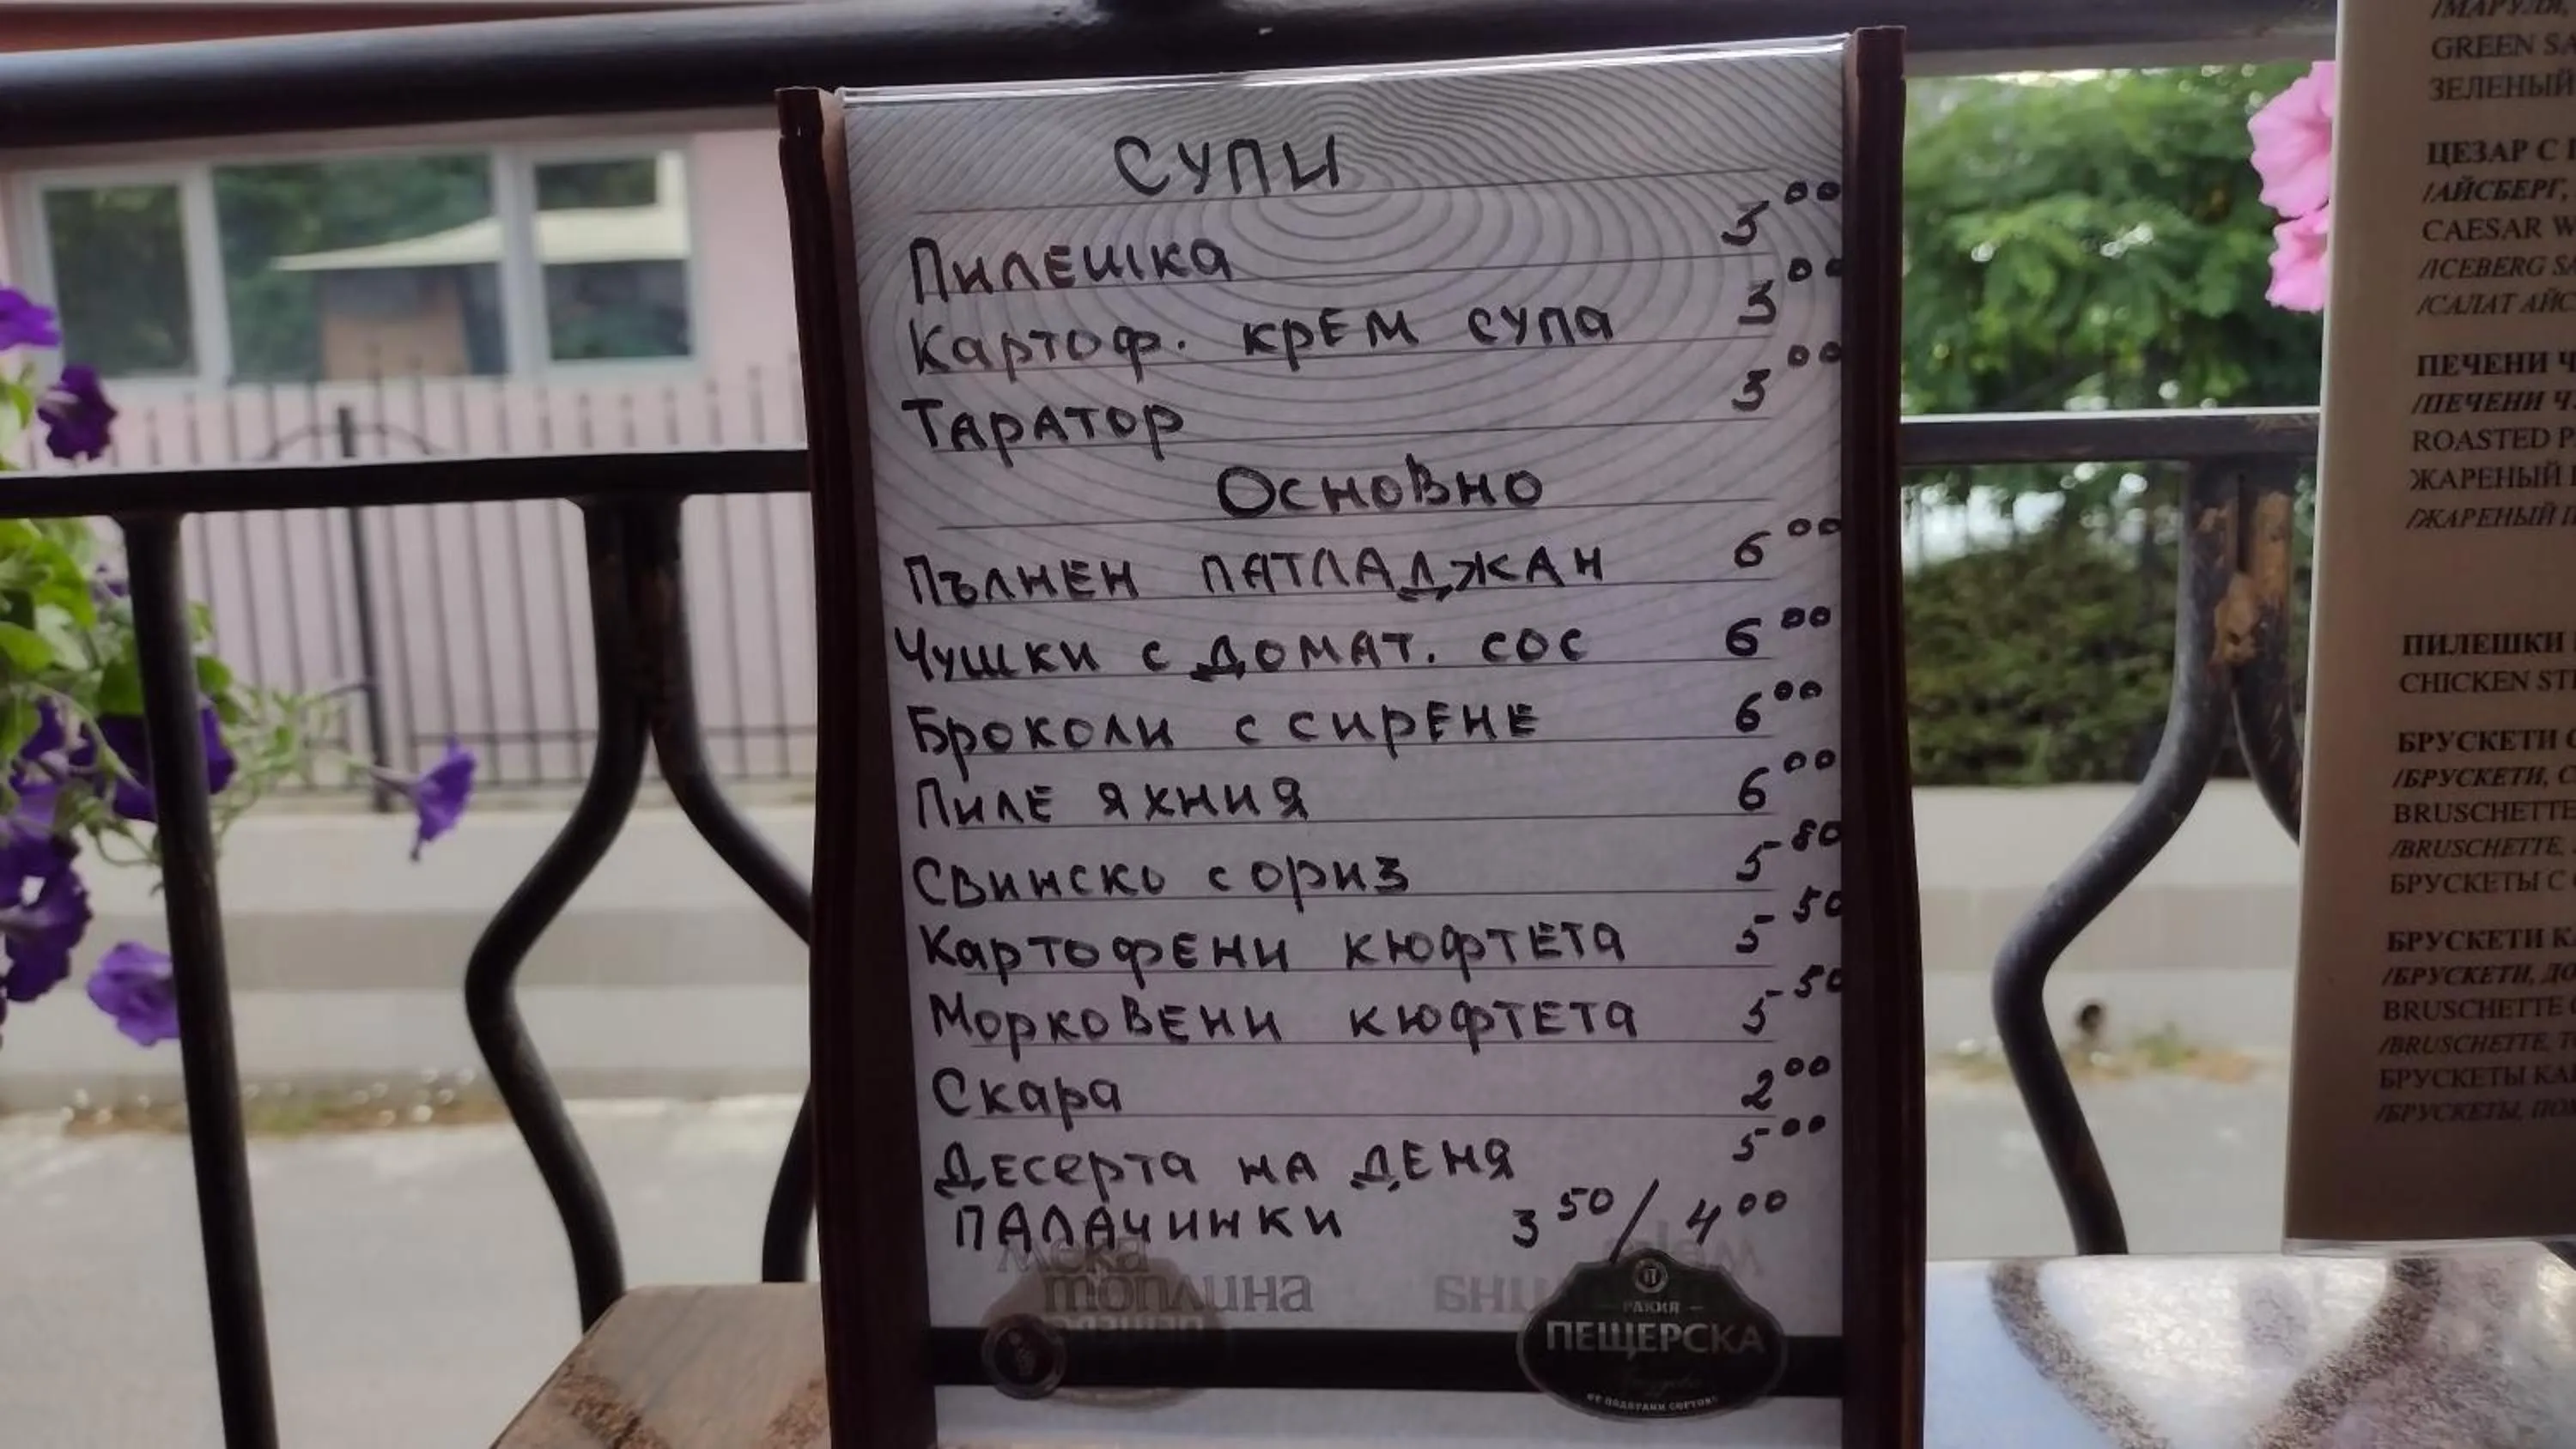 СУПИ
Пилешка 3⁰⁰
Картоф. крем супа 3⁰⁰
Таратор 3⁰⁰
Основно
Пълнен патладжан 6⁰⁰
Чушки с домат. сос 6⁰⁰
Броколи с сирене 6⁰⁰
Пиле яхния 6⁰⁰
Свинско с ориз 5⁸⁰
Картофени кюфтета 5⁵⁰
Морковени кюфтета 5⁵⁰
Скара 2⁰⁰
Десерта на деня 5⁰⁰
ПАЛАЧИНКИ 3⁵⁰/4⁰⁰
мека
топлина
РАКИЯ
ПЕЩЕРСКА
GREEN
ЗЕЛЕНЫЙ
ЦЕЗАР С
/АЙСБЕРГ,
CAESAR
/ICEBERG
/САЛАТ
ПЕЧЕНИ
/ПЕЧЕНИ
ROASTED
ЖАРЕНЫЙ
/ЖАРЕНЫЙ
ПИЛЕШКИ
CHICKEN
БРУСКЕТИ
/БРУСКЕТИ,
BRUSCHETTE
/BRUSCHETTE,
БРУСКЕТЫ С
БРУСКЕТИ
/БРУСКЕТИ,
BRUSCHETTE
/BRUSCHETTE,
БРУСКЕТЫ
/БРУСКЕТЫ,